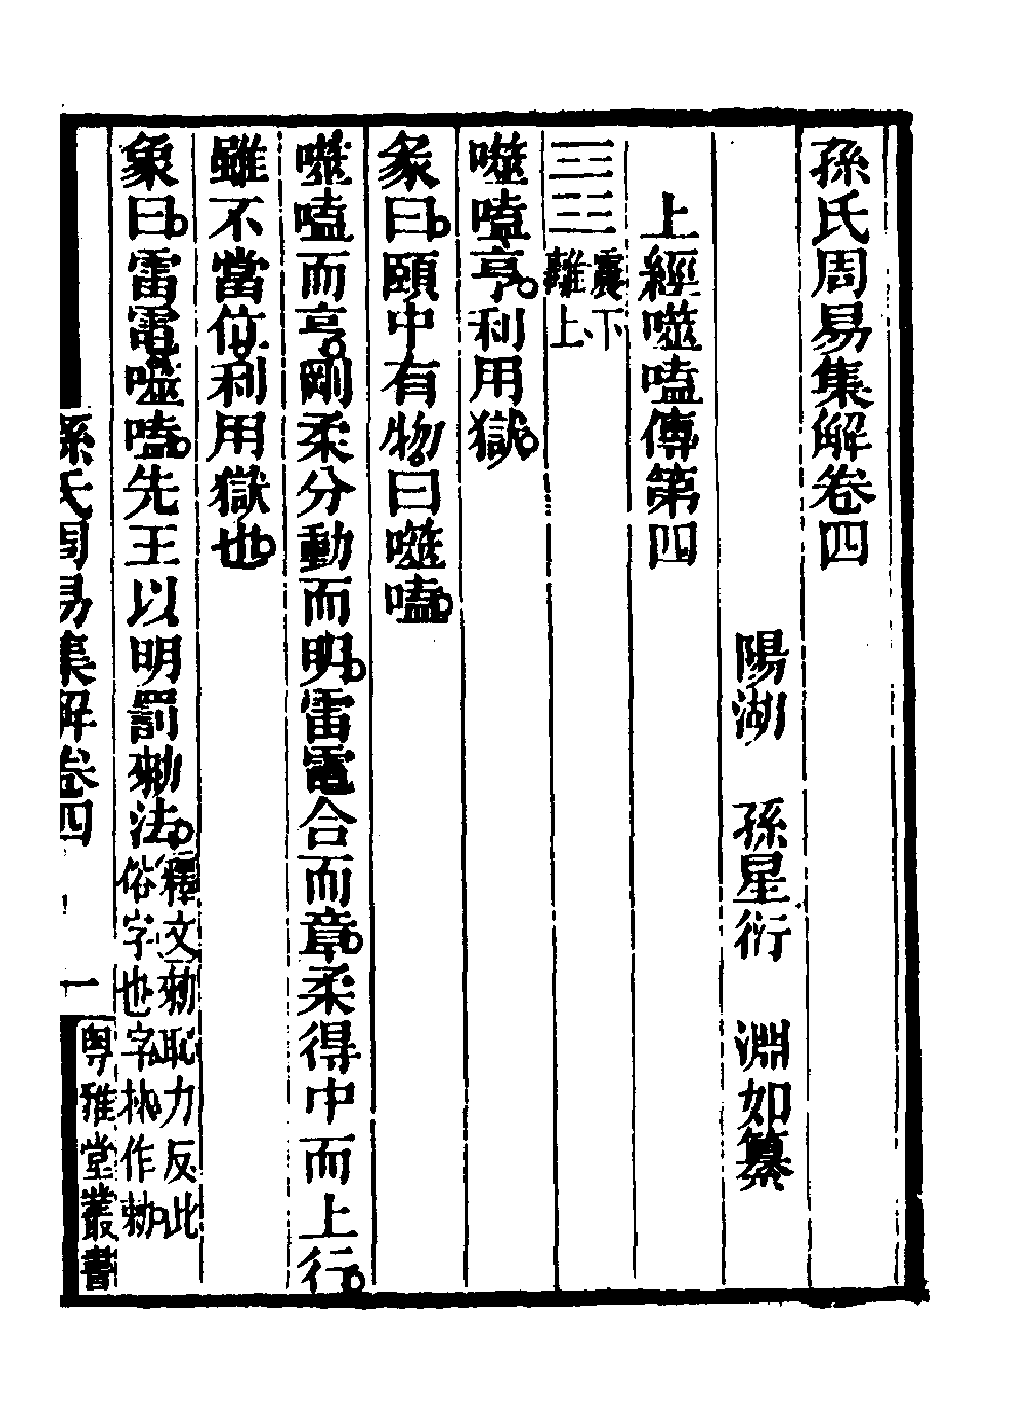 孫氏周易集解卷四
陽湖 孫星衍 淵如纂
上經噬嗑傳第四
䷔震下離上
噬嗑亨。利用獄。
彖曰。頤中有物。曰噬嗑。
噬嗑而亨。剛柔分動而明。雷電合而章。柔得中而上行。
雖不當位。利用獄也。
象曰。雷電噬嗑。先王以明罰勑法。釋文勑恥力反此
俗字也字林作勅。
孫氏周易集解卷四 一 粵雅堂叢書